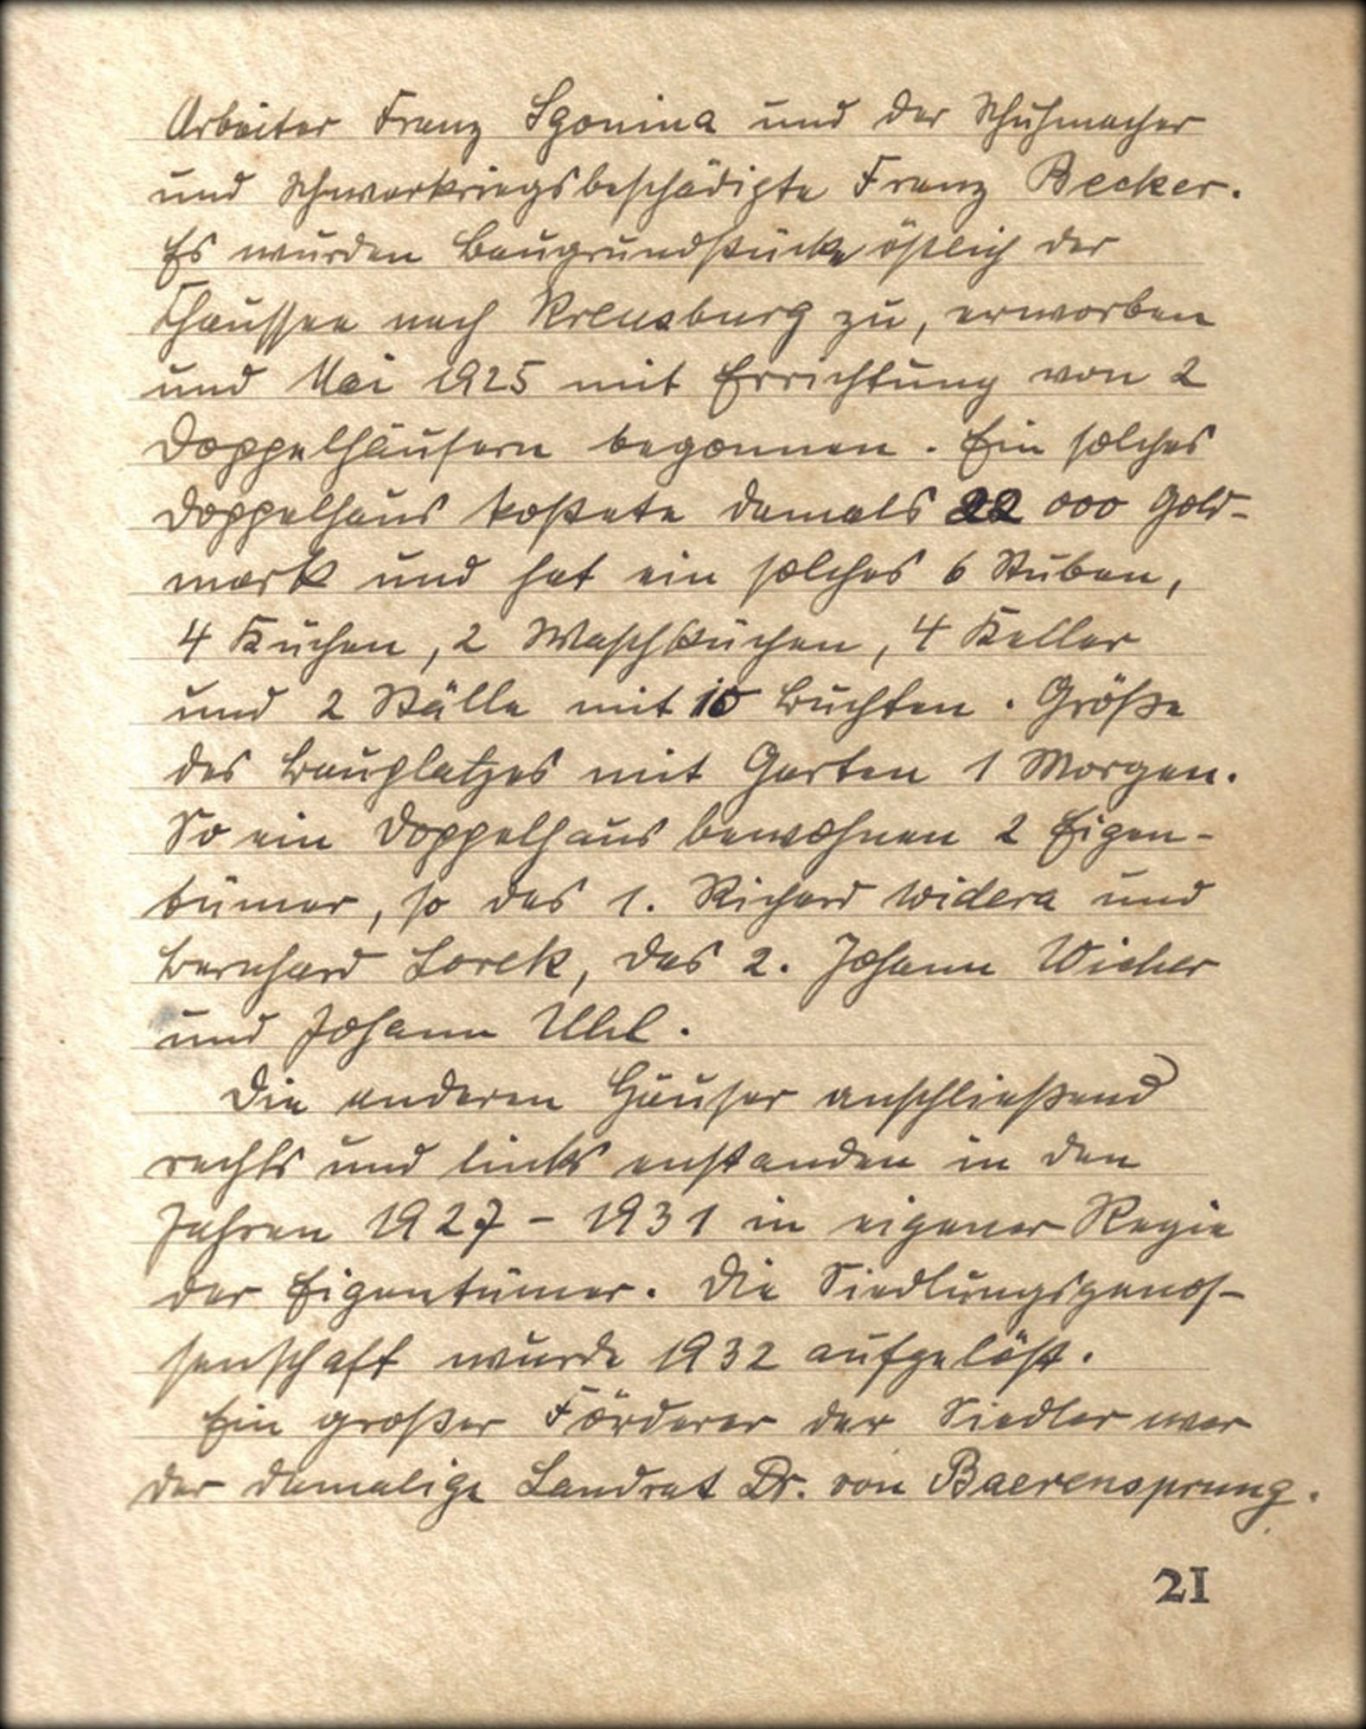 Arbeiter Franz Sgonina und der Schuhmacher
und Schwerkriegsbeschädigte Franz Becker.
Es wurden Baugrundstücke östlich der
Chaussee nach Kreuzburg zu, erworben
und Mai 1925 mit Errichtung von 2
Doppelhäusern begonnen. Ein solches
Doppelhaus kostete damals 22 000 Gold-
mark und hat ein solches 6 Stuben,
4 Küchen, 2 Waschküchen, 4 Keller
und 2 Ställe mit 10 Buchten. Größe
des Bauplatzes mit Garten 1 Morgen.
So ein Doppelhaus bewohnen 2 Eigen-
tümer, so das 1. Richard Widera und
Bernhard Lorek, das 2. Johann Wicher
und Johann Uhl.
Die anderen Häuser anschließend
rechts und links enstanden in den
Jahren 1927 - 1931 in eigener Regie
der Eigentümer. Die Siedlungsgenos-
senschaft wurde 1932 aufgelöst.
Ein großer Förderer der Siedler war
der damalige Landrat Dr. von Baerensprung.
21